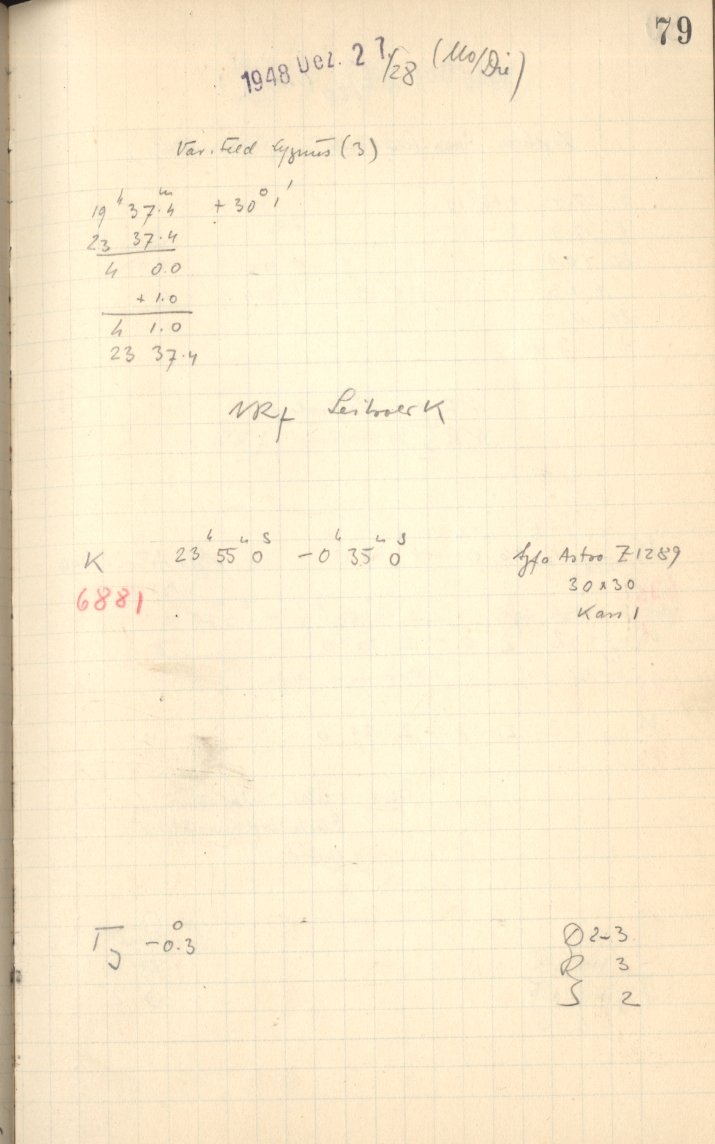 79
1948 Dez. 27/28 (Mo/Die)
Var. Feld Cygnus (3)
19ʰ 37.4ᵐ + 30° 1'
23 37.4
4 0.0
+ 1.0
4 1.0
23 37.4
Leitwerk
K 23ʰ 55ᵐ 0ˢ - 0ʰ 35ᵐ 0ˢ Agfa Astro Z1289
6881 30x30
Kass 1
T -0.3°
2-3
R 3
S 2